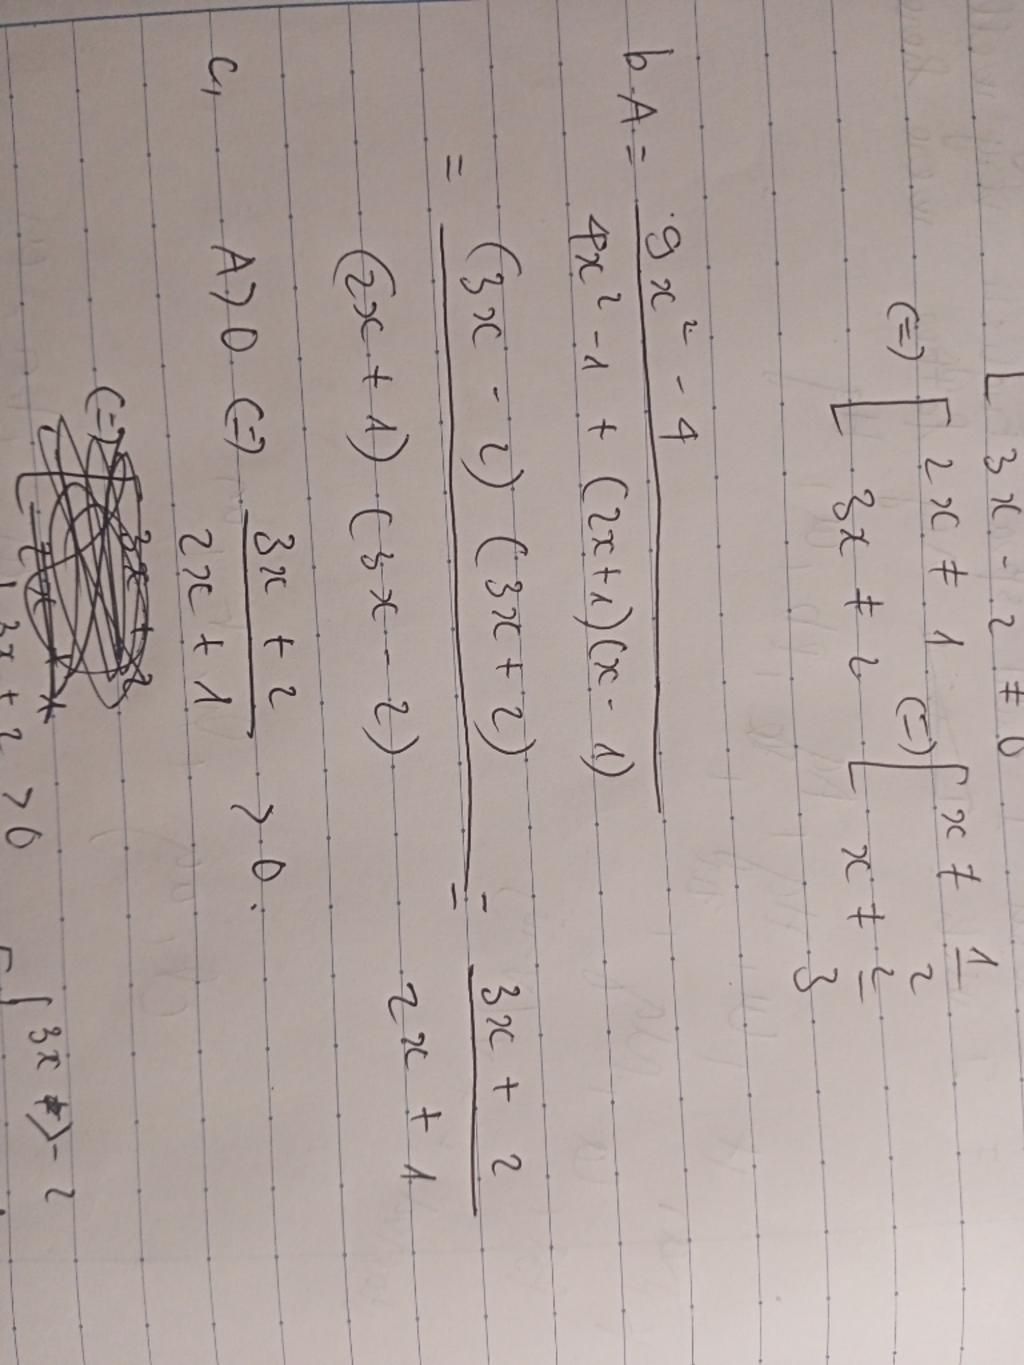 3x - 2 ≠ 0
(=) [ 2x ≠ 1 (=) [ x ≠ 1/2
3x ≠ 2 x ≠ 2/3
b A = 9x² - 4
4x² - 1 + (2x+1)(x-1)
= (3x - 2) (3x+2) = 3x + 2
(2x+1) (3x - 2) 2x + 1
c, A > 0 (=) 3x + 2 > 0.
2x + 1
(=)
3x + 2 > 0
3x > -2